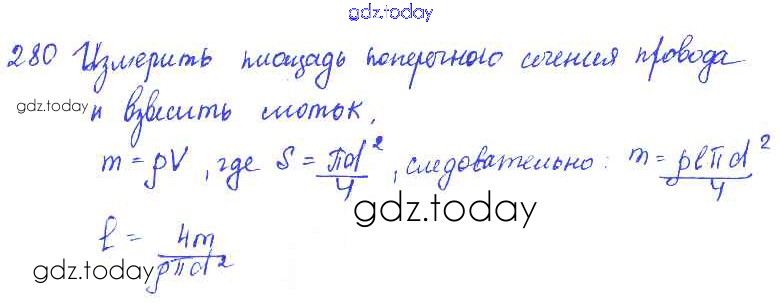 gdz.today
280 Измерить площадь поперечного сечения провода
gdz.today и взвесить моток.
m = ρV, где S = πd²/4, следовательно: m = ρlπd²/4
gdz.today
l = 4m/ρπd²
gdz.today